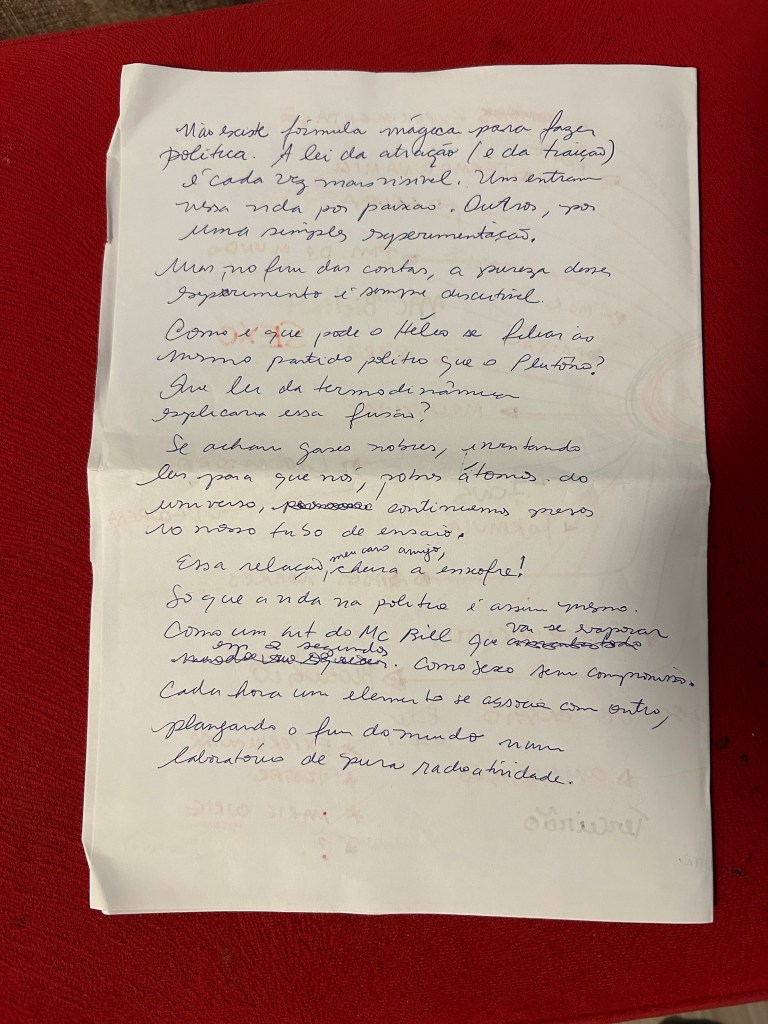 Não existe fórmula mágica para fazer
política. A lei da atração (e da traição)
é cada vez mais visível. Uns entram
nessa vida por paixão. Outros, por
uma simples experimentação.
Mas, no fim das contas, a pureza desse
experimento é sempre discutível.
Como é que pode o Hélio se filiar ao
mesmo partido político que o Plutônio?
Que lei da termodinâmica
explicaria essa fusão?
Se acham gases nobres, inventando
leis para que nós, pobres átomos do
universo, continuemos presos
no nosso tubo de ensaio.
Essa relação, meu caro amigo, cheira a enxofre!
Só que a vida na política é assim mesmo.
Como um hit do Mc Bill que vai se evaporar
em 2 segundos. Como sexo sem compromisso.
Cada hora um elemento se associa com outro,
planejando o fim do mundo num
laboratório de pura radioatividade.